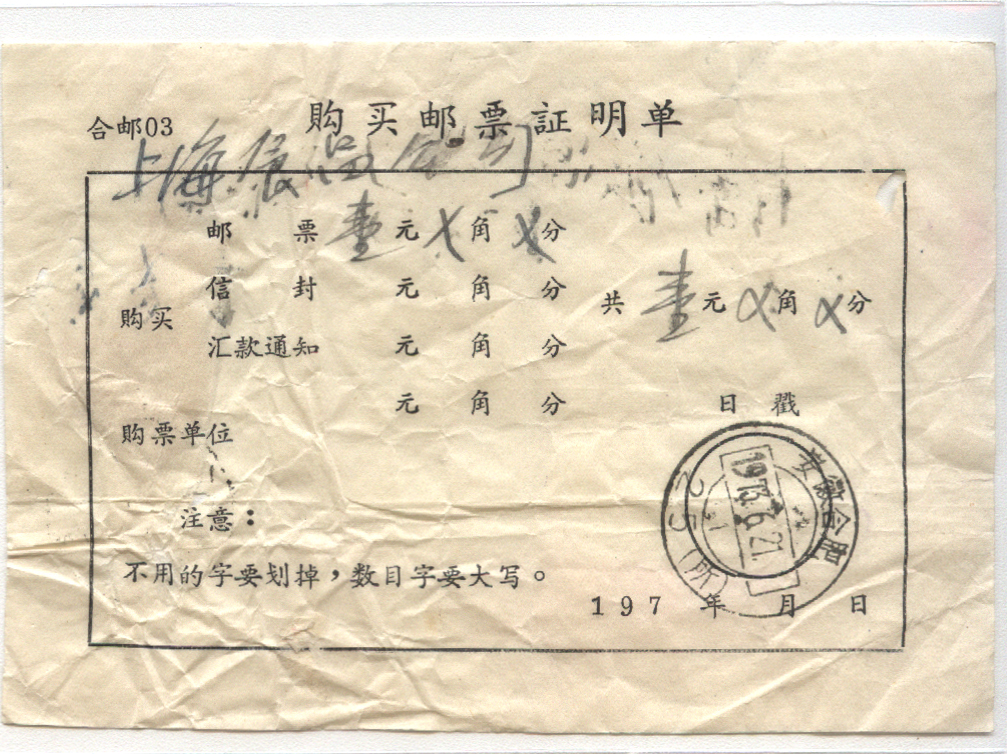 合邮03 购买邮票証明单
上海
邮票壹元X角X分
信封 元 角 分 共壹元X角X分
购买
汇款通知 元 角 分
元 角 分 日戳
购票单位
安徽合肥
1973.6.21
25(所)
注意：
不用的字要划掉，数目字要大写。
197 年 月 日